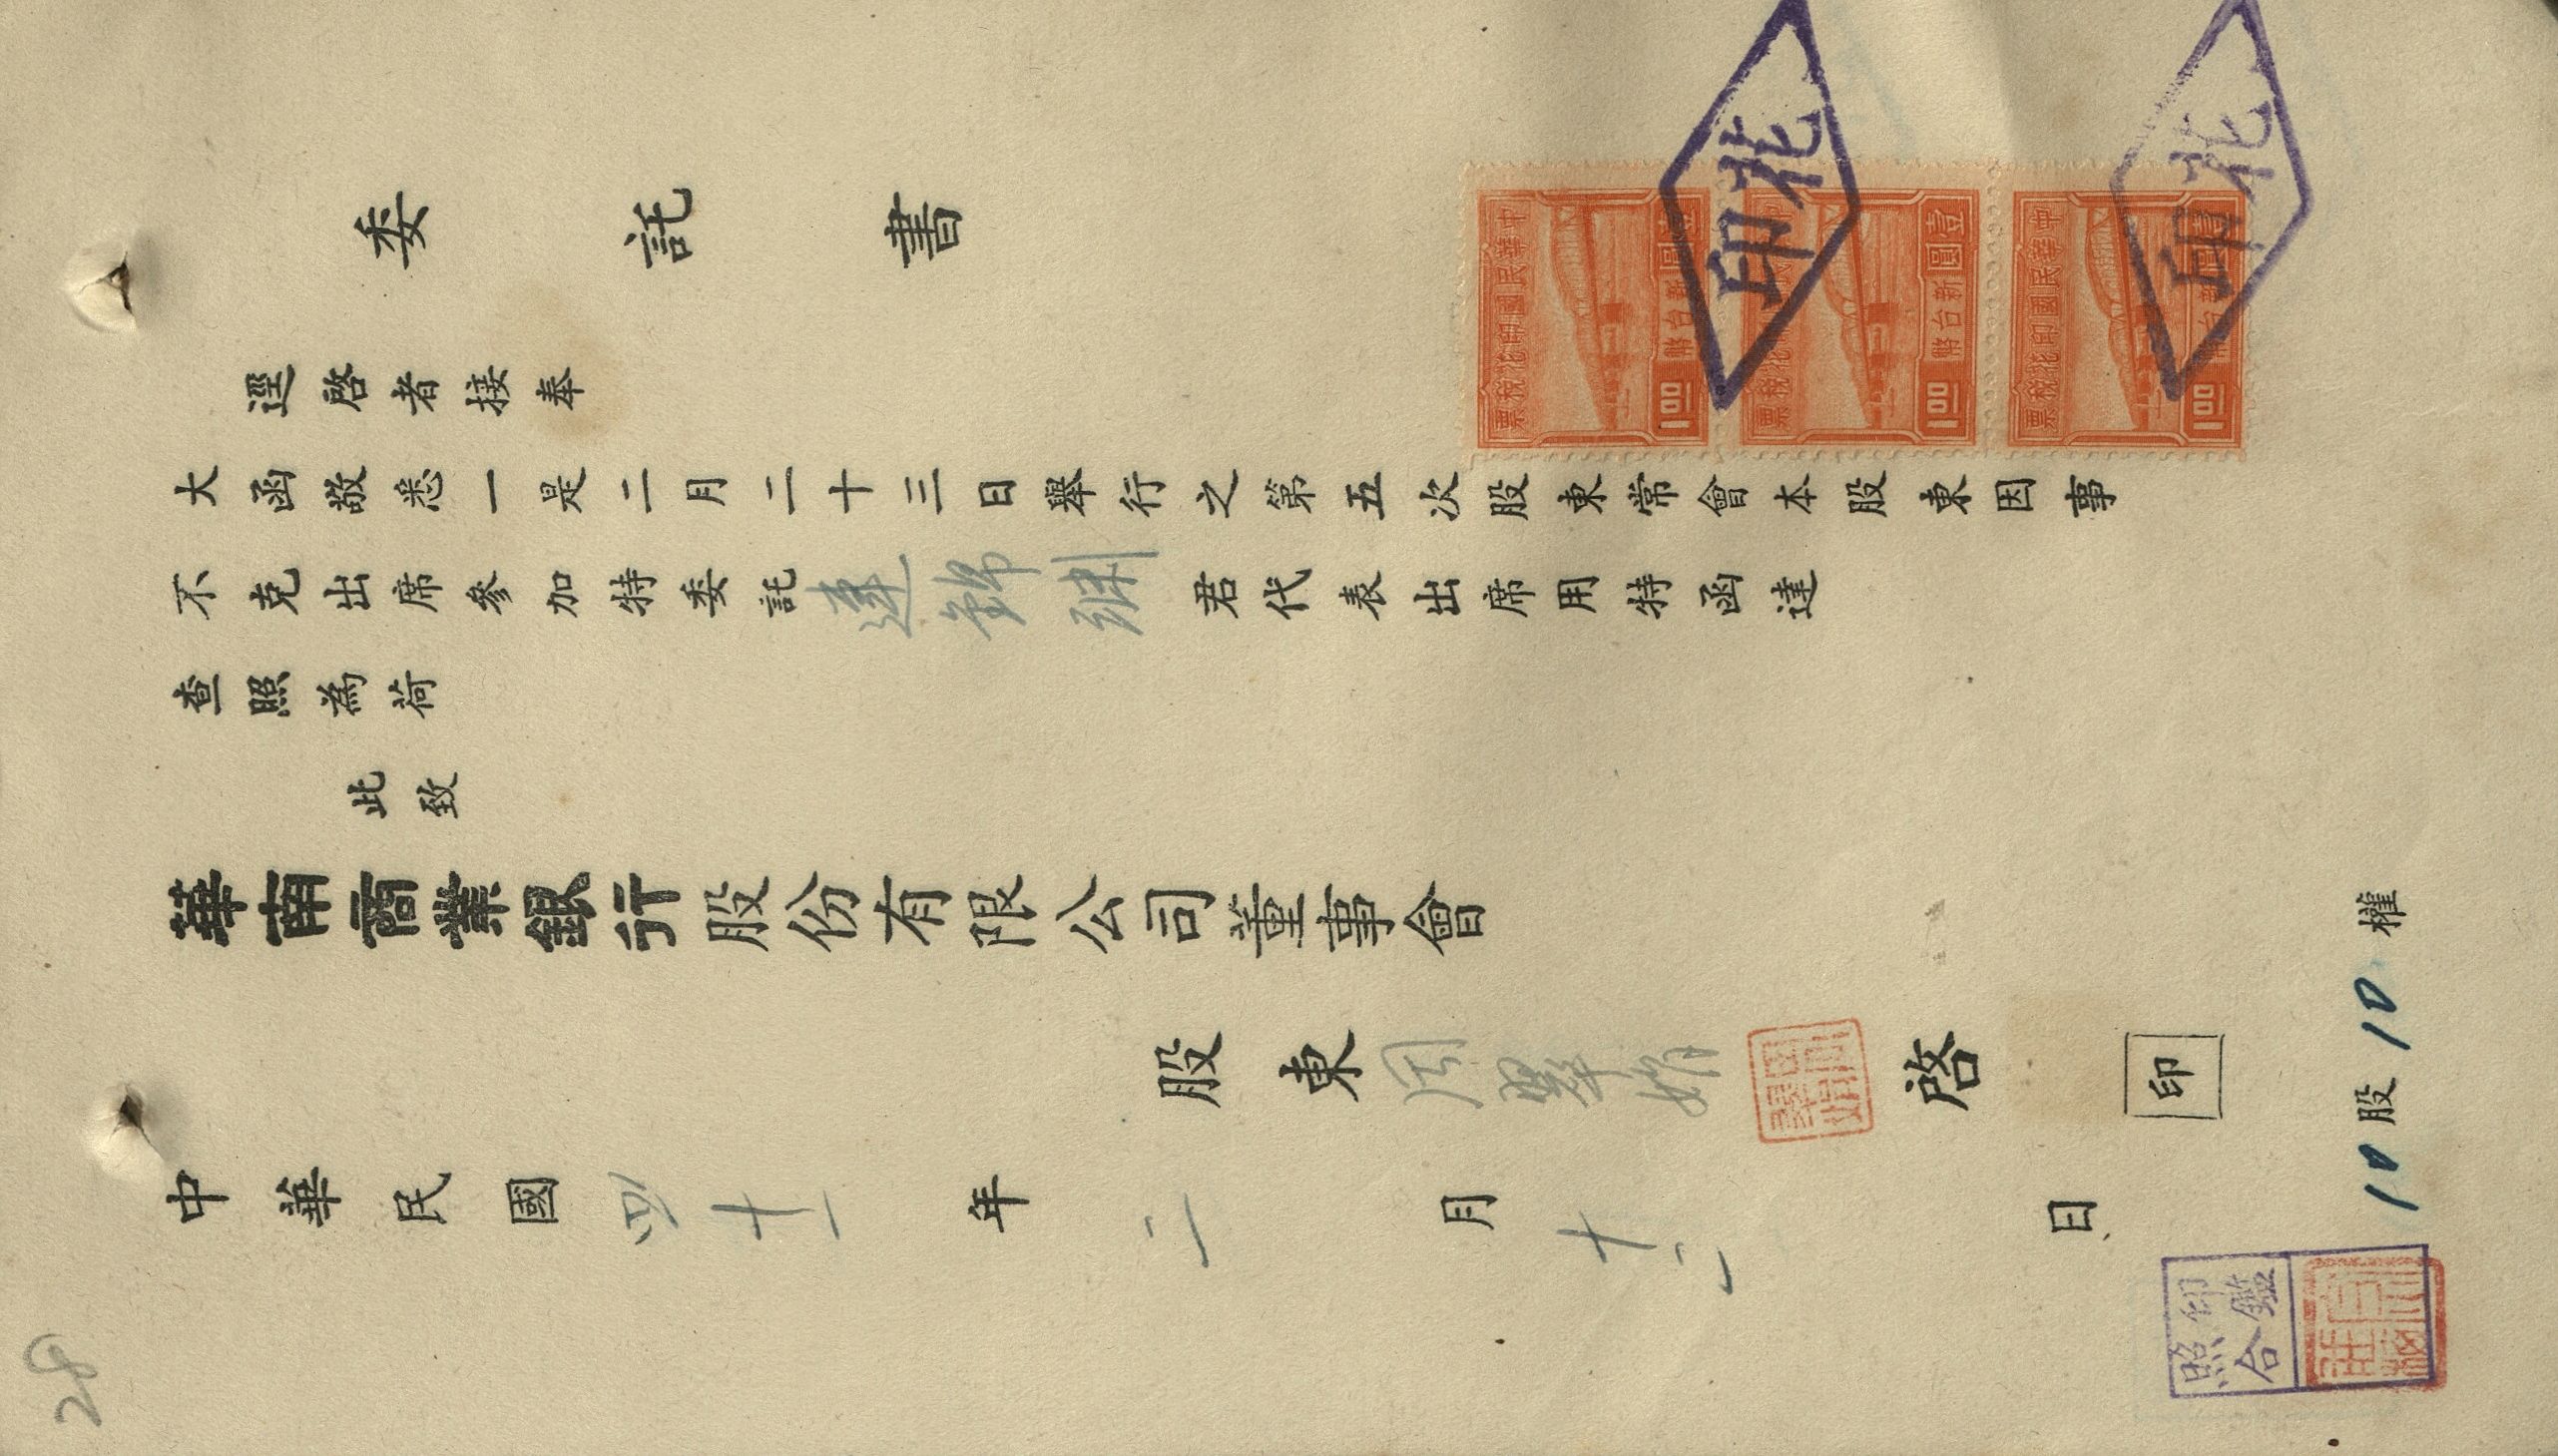 委託書
中華民國印花稅票
新台幣壹圓
1.00
中華民國印花稅票
新台幣壹圓
1.00
中華民國印花稅票
新台幣壹圓
1.00
印花
印花
逕啓者接奉
大函敬悉一是二月二十三日舉行之第五次股東常會本股東因事
不克出席參加特委託連錦 君代表出席用特函達
查照為荷
此致
華南商業銀行股份有限公司董事會
股東周翠娟啓 印
10股10權
中華民國四十一年二月十二日
印鑑
照合
28